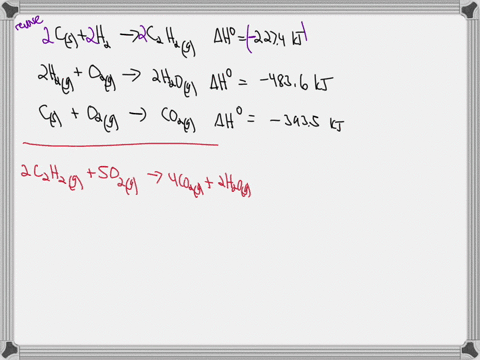 reverse
2C(s) + 2H2 → 2C2H2(g) ΔH° = (-227.4 kJ)
2H2(g) + O2(g) → 2H2O(g) ΔH° = -483.6 kJ
C(s) + O2(g) → CO2(g) ΔH° = -393.5 kJ
2C2H2(g) + 5O2(g) → 4CO2(g) + 2H2O(g)